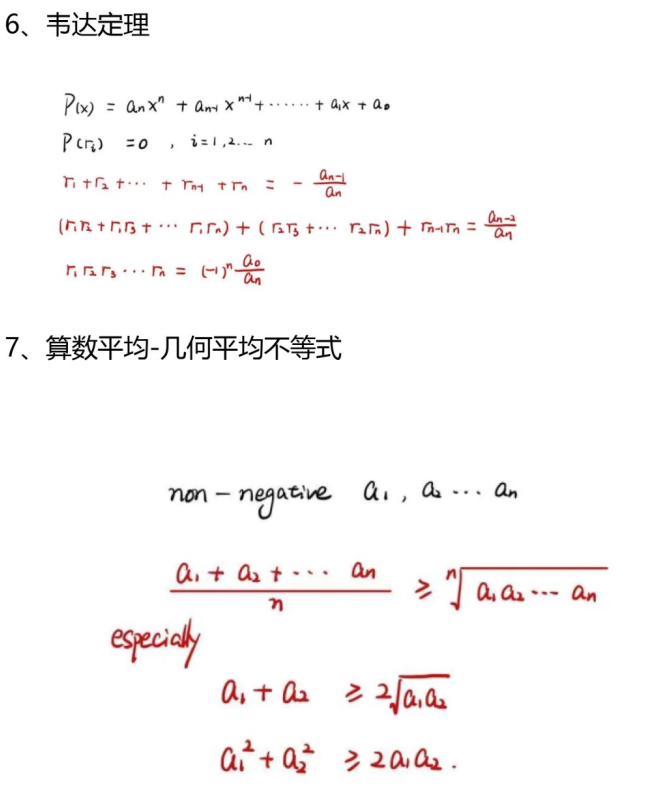 6、韦达定理
P(x) = aₙxⁿ + aₙ₋₁xⁿ⁻¹ + ⋯⋯ + a₁x + a₀
P(rᵢ) = 0 , i=1,2... n
r₁+r₂+⋯ + rₙ₋₁ + rₙ = - aₙ₋₁/aₙ
(r₁r₂+r₁r₃+⋯ r₁rₙ) + (r₂r₃+⋯ r₂rₙ) + rₙ₋₁rₙ = aₙ₋₂/aₙ
r₁r₂r₃⋯rₙ = (-1)ⁿ a₀/aₙ
7、算数平均-几何平均不等式
non-negative a₁, a₂ ⋯ aₙ
(a₁ + a₂ + ⋯ aₙ)/n ≥ ⁿ√(a₁a₂⋯aₙ)
especially
a₁ + a₂ ≥ 2√(a₁a₂)
a₁² + a₂² ≥ 2a₁a₂.